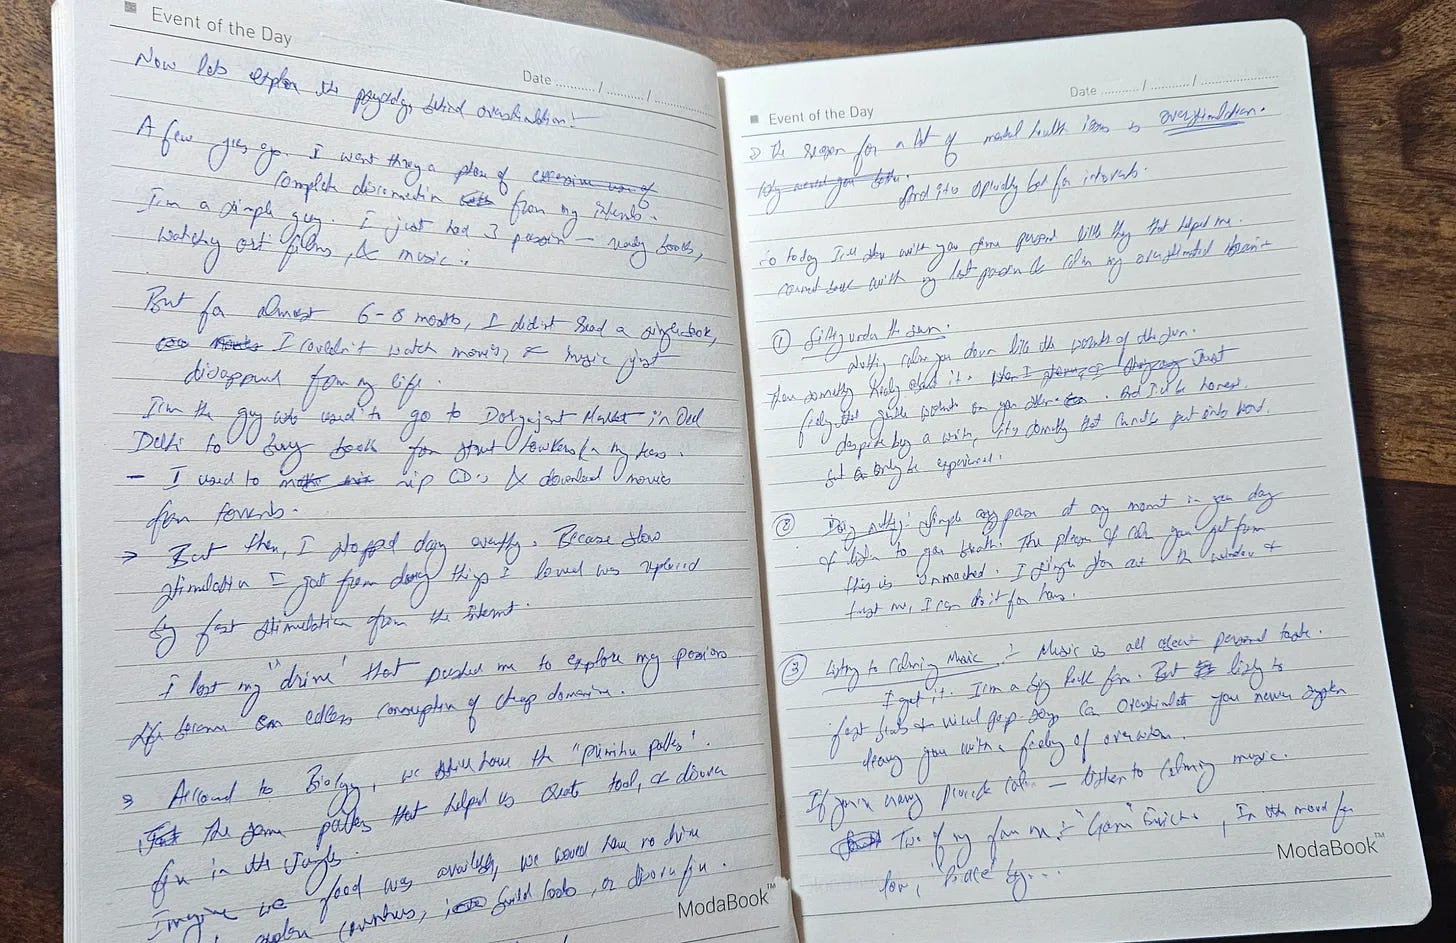 Event of the Day
Date ........... / ........... / ...............
Now lets explore the behind overstimulation!
A few years ago I went through a phase of excessive use of
complete disconnection from my interests.
I'm a simple guy. I just had 3 passion — reading books,
watching art films, & music.
But for almost 6-8 months, I didn't read a single book,
I couldn't watch movies, & music just
disappeared from my life.
I'm the guy who used to go to Market in
Delhi to buy books from street hawkers
– I used to rip CD's & download movies
from torrents.
→ But then, I stopped doing everything. Because slow
stimulation I got from doing things I loved was replaced
by fast stimulation from the internet.
I lost my "drive" that pushed me to explore my passions
Life became an endless consumption of cheap dopamine.
According to Biology, we still have the "primitive paths".
the same paths that helped us create tool, & discover
fire in the Jungle.
Imagine we food was available, we would have no drive
explore countries, build tools, or discover fire.
ModaBook™
Event of the Day
Date ........... / ........... / ...............
the reason for a lot of mental health issues is overstimulation.
And it's for
So today I'll share with you some personal things that helped me
connect back with my lost passion & calm my overstimulated
① Sitting under the sun.
Nothing calms you down like the warmth of the sun.
There something about it. Just
feeling that gentle warmth on your . And I'll be honest.
despite being a writer, it's something that cannot be put into words.
but only be experienced.
② Doing nothing: Simple pause at any moment in your day
& listen to your breath. The of calm you get from
this is unmatched. I simply out the window &
trust me, I can do it for hours.
③ Listening to Calming Music :- Music is all about personal taste.
I get it. I'm a big Rock fan. But listening to
fast beats & viral pop songs can overstimulate your nervous system
leaving you with a feeling of
If you're calm — listen to calming music.
Two of my :- , In the mood for
love,
ModaBook™